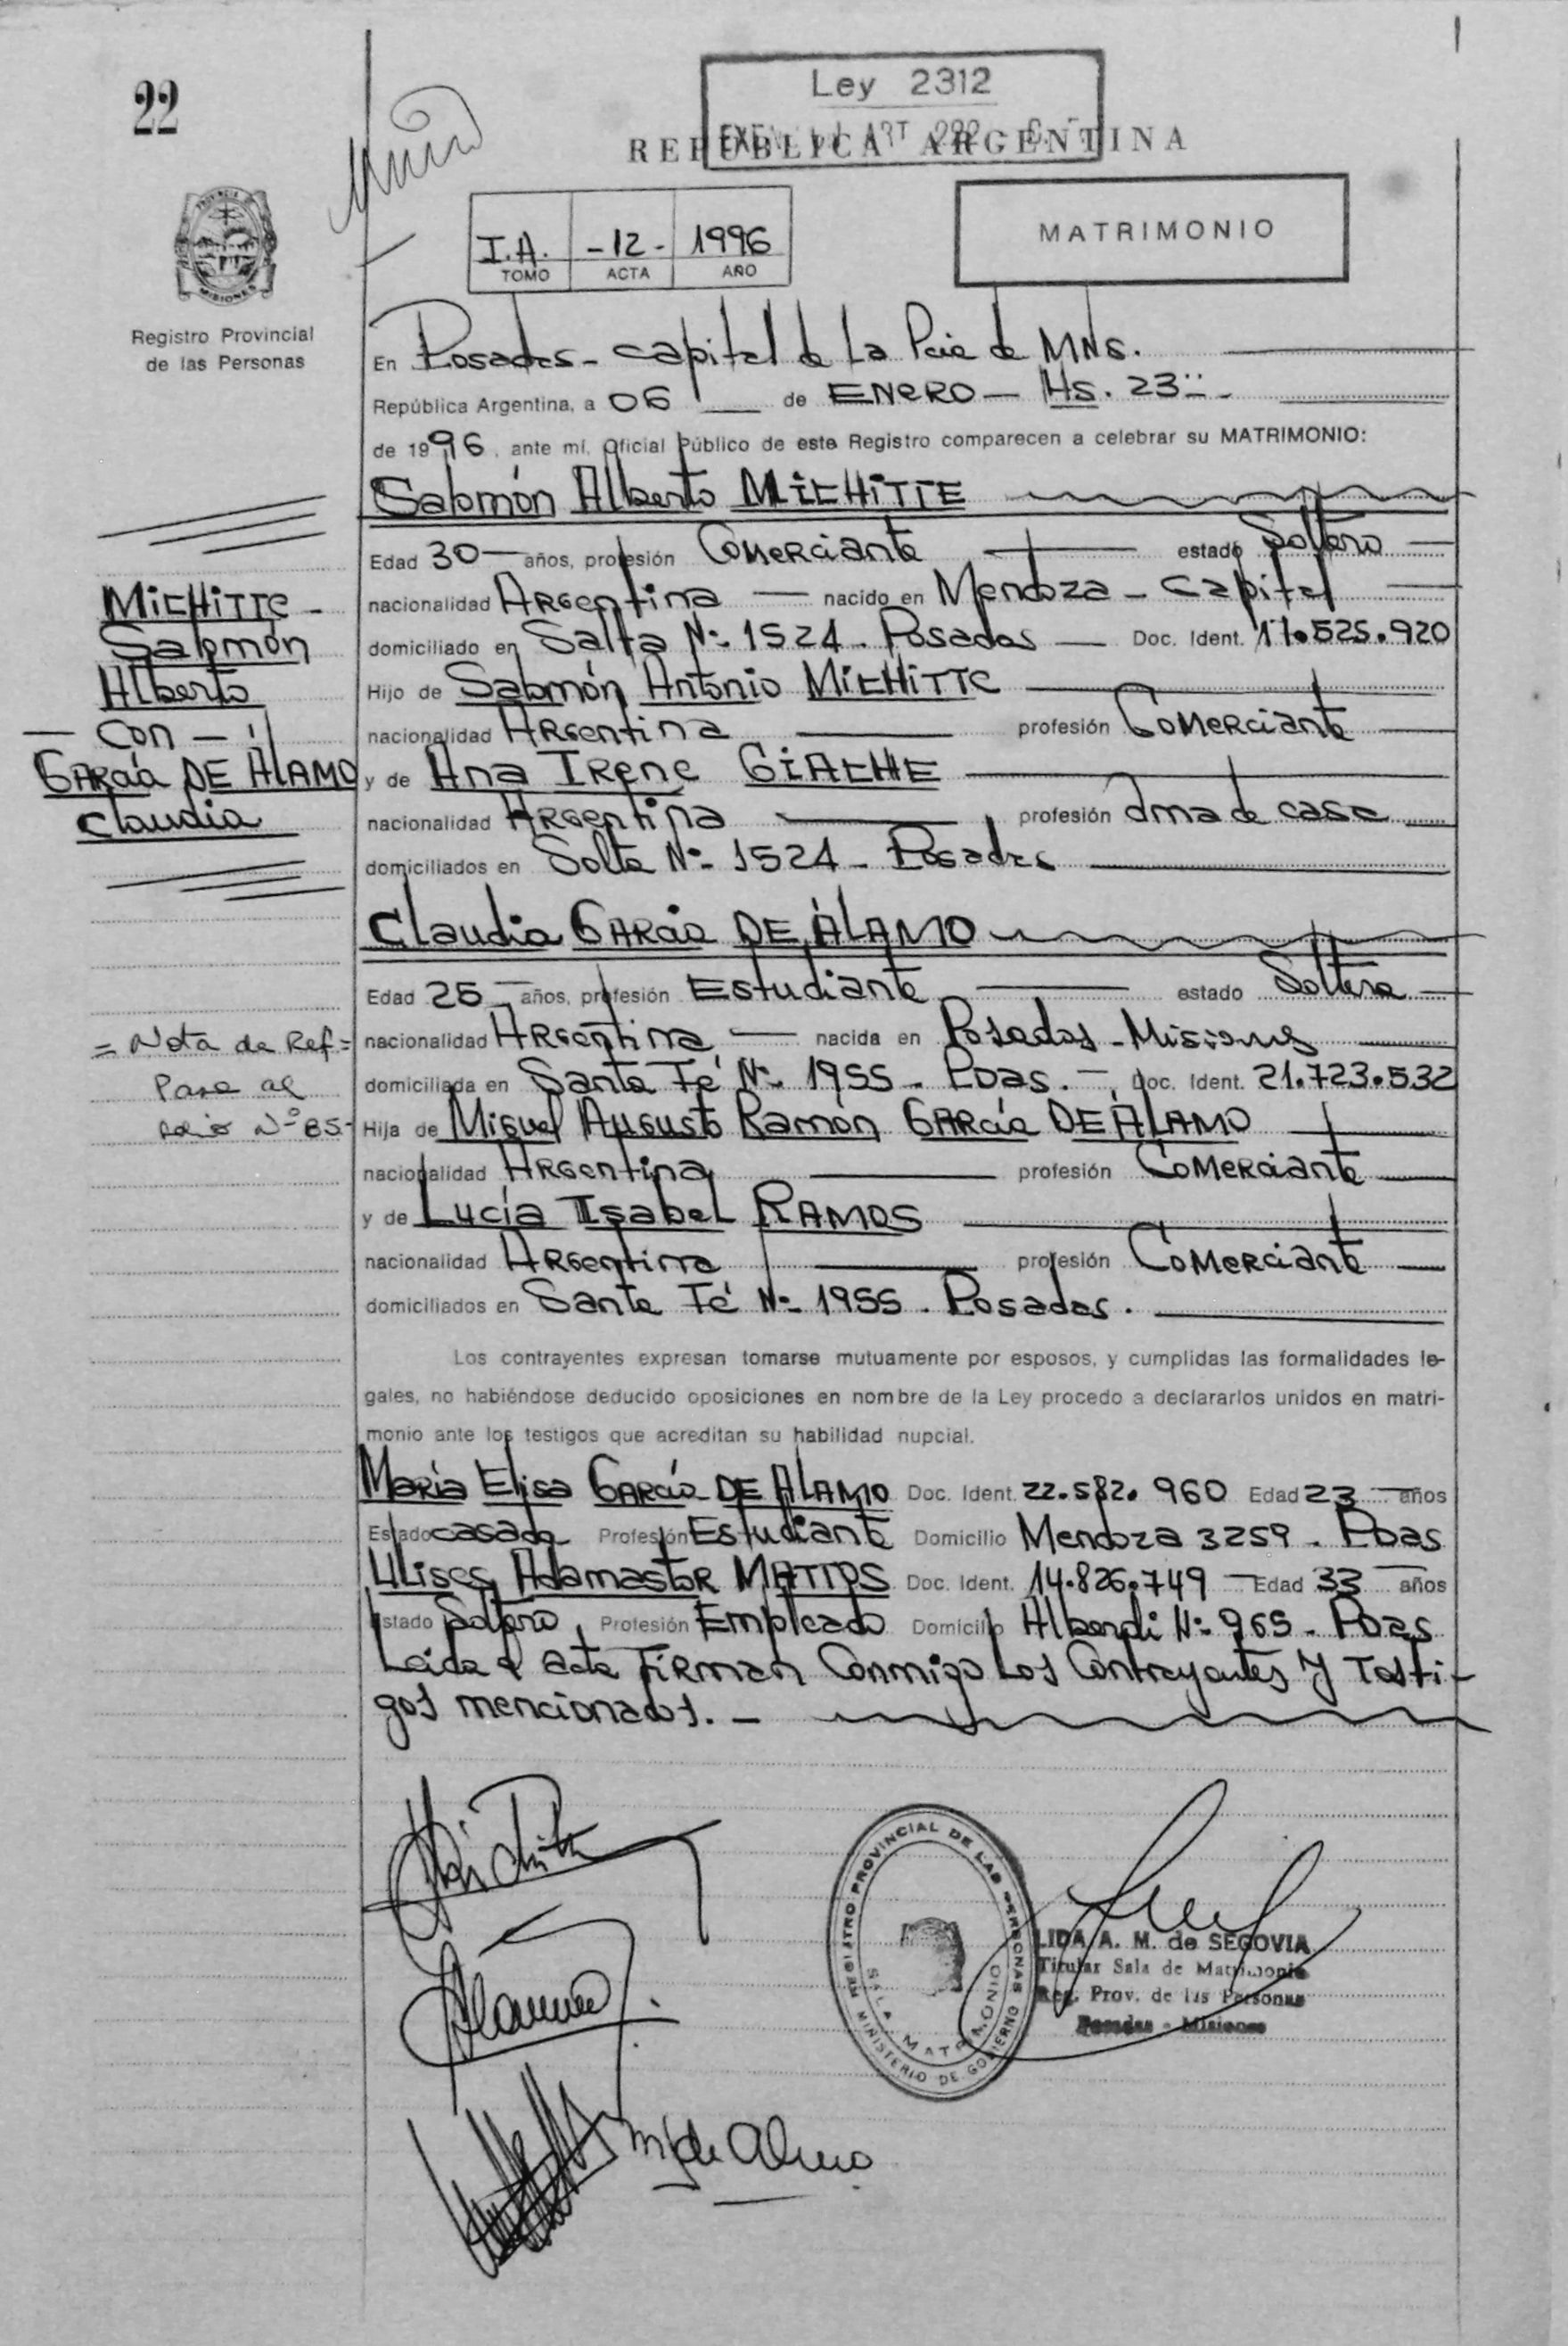 22
Ley 2312
REPUBLICA ARGENTINA
PROVINCIA
MISIONES
Registro Provincial
de las Personas
I.A. -12- 1996
TOMO ACTA AÑO
MATRIMONIO
En Posadas - capital de La Pcia de MNS.
República Argentina, a 06 de ENERO - Hs. 23
de 1996, ante mí, Oficial Público de este Registro comparecen a celebrar su MATRIMONIO:
Salomón Alberto MICHITTE
Edad 30 años, profesión Comerciante estado Soltero
nacionalidad Argentina nacido en Mendoza - Capital
domiciliado en Salta Nº 1524 - Posadas Doc. Ident. 17.525.920
Hijo de Salomón Antonio MICHITTE
nacionalidad Argentina profesión Comerciante
y de Ana Irene GIACHE
nacionalidad Argentina profesión Ama de casa
domiciliados en Salta Nº 1524 - Posadas
MICHITTE -
Salomón
Alberto
- con -
GARCÍA DE ÁLAMO
Claudia
Claudia GARCÍA DE ÁLAMO
Edad 25 años, profesión Estudiante estado Soltera
nacionalidad Argentina nacida en Posadas - Misiones
domiciliada en Santa Fé Nº 1955 - Pdas. - Doc. Ident. 21.723.532
Hija de Miguel Augusto Ramón GARCÍA DE ÁLAMO
nacionalidad Argentina profesión Comerciante
y de Lucía Isabel RAMOS
nacionalidad Argentina profesión Comerciante
domiciliados en Santa Fé Nº 1955 - Posadas.
= Nota de Ref =
Pasa al
folio Nº 85-
Los contrayentes expresan tomarse mutuamente por esposos, y cumplidas las formalidades le-
gales, no habiéndose deducido oposiciones en nombre de la Ley procedo a declararlos unidos en matri-
monio ante los testigos que acreditan su habilidad nupcial.
María Elisa GARCÍA DE ALAMO Doc. Ident. 22.582.960 Edad 23 años
Estado casada Profesión Estudiante Domicilio Mendoza 3259 - Pdas
Ulises Adamastor MATTOS Doc. Ident. 14.826.749 Edad 33 años
Estado Soltero Profesión Empleado Domicilio Alberdi Nº 965 - Pdas
Leída el acta Firman Conmigo Los Contrayentes Y Testi-
gos mencionados. -
REGISTRO PROVINCIAL DE LAS PERSONAS
SALA MATRIMONIO
MINISTERIO DE GOBIERNO
LIDA A. M. de SEGOVIA
Titular Sala de Matrimonio
Reg. Prov. de las Personas
Posadas - Misiones